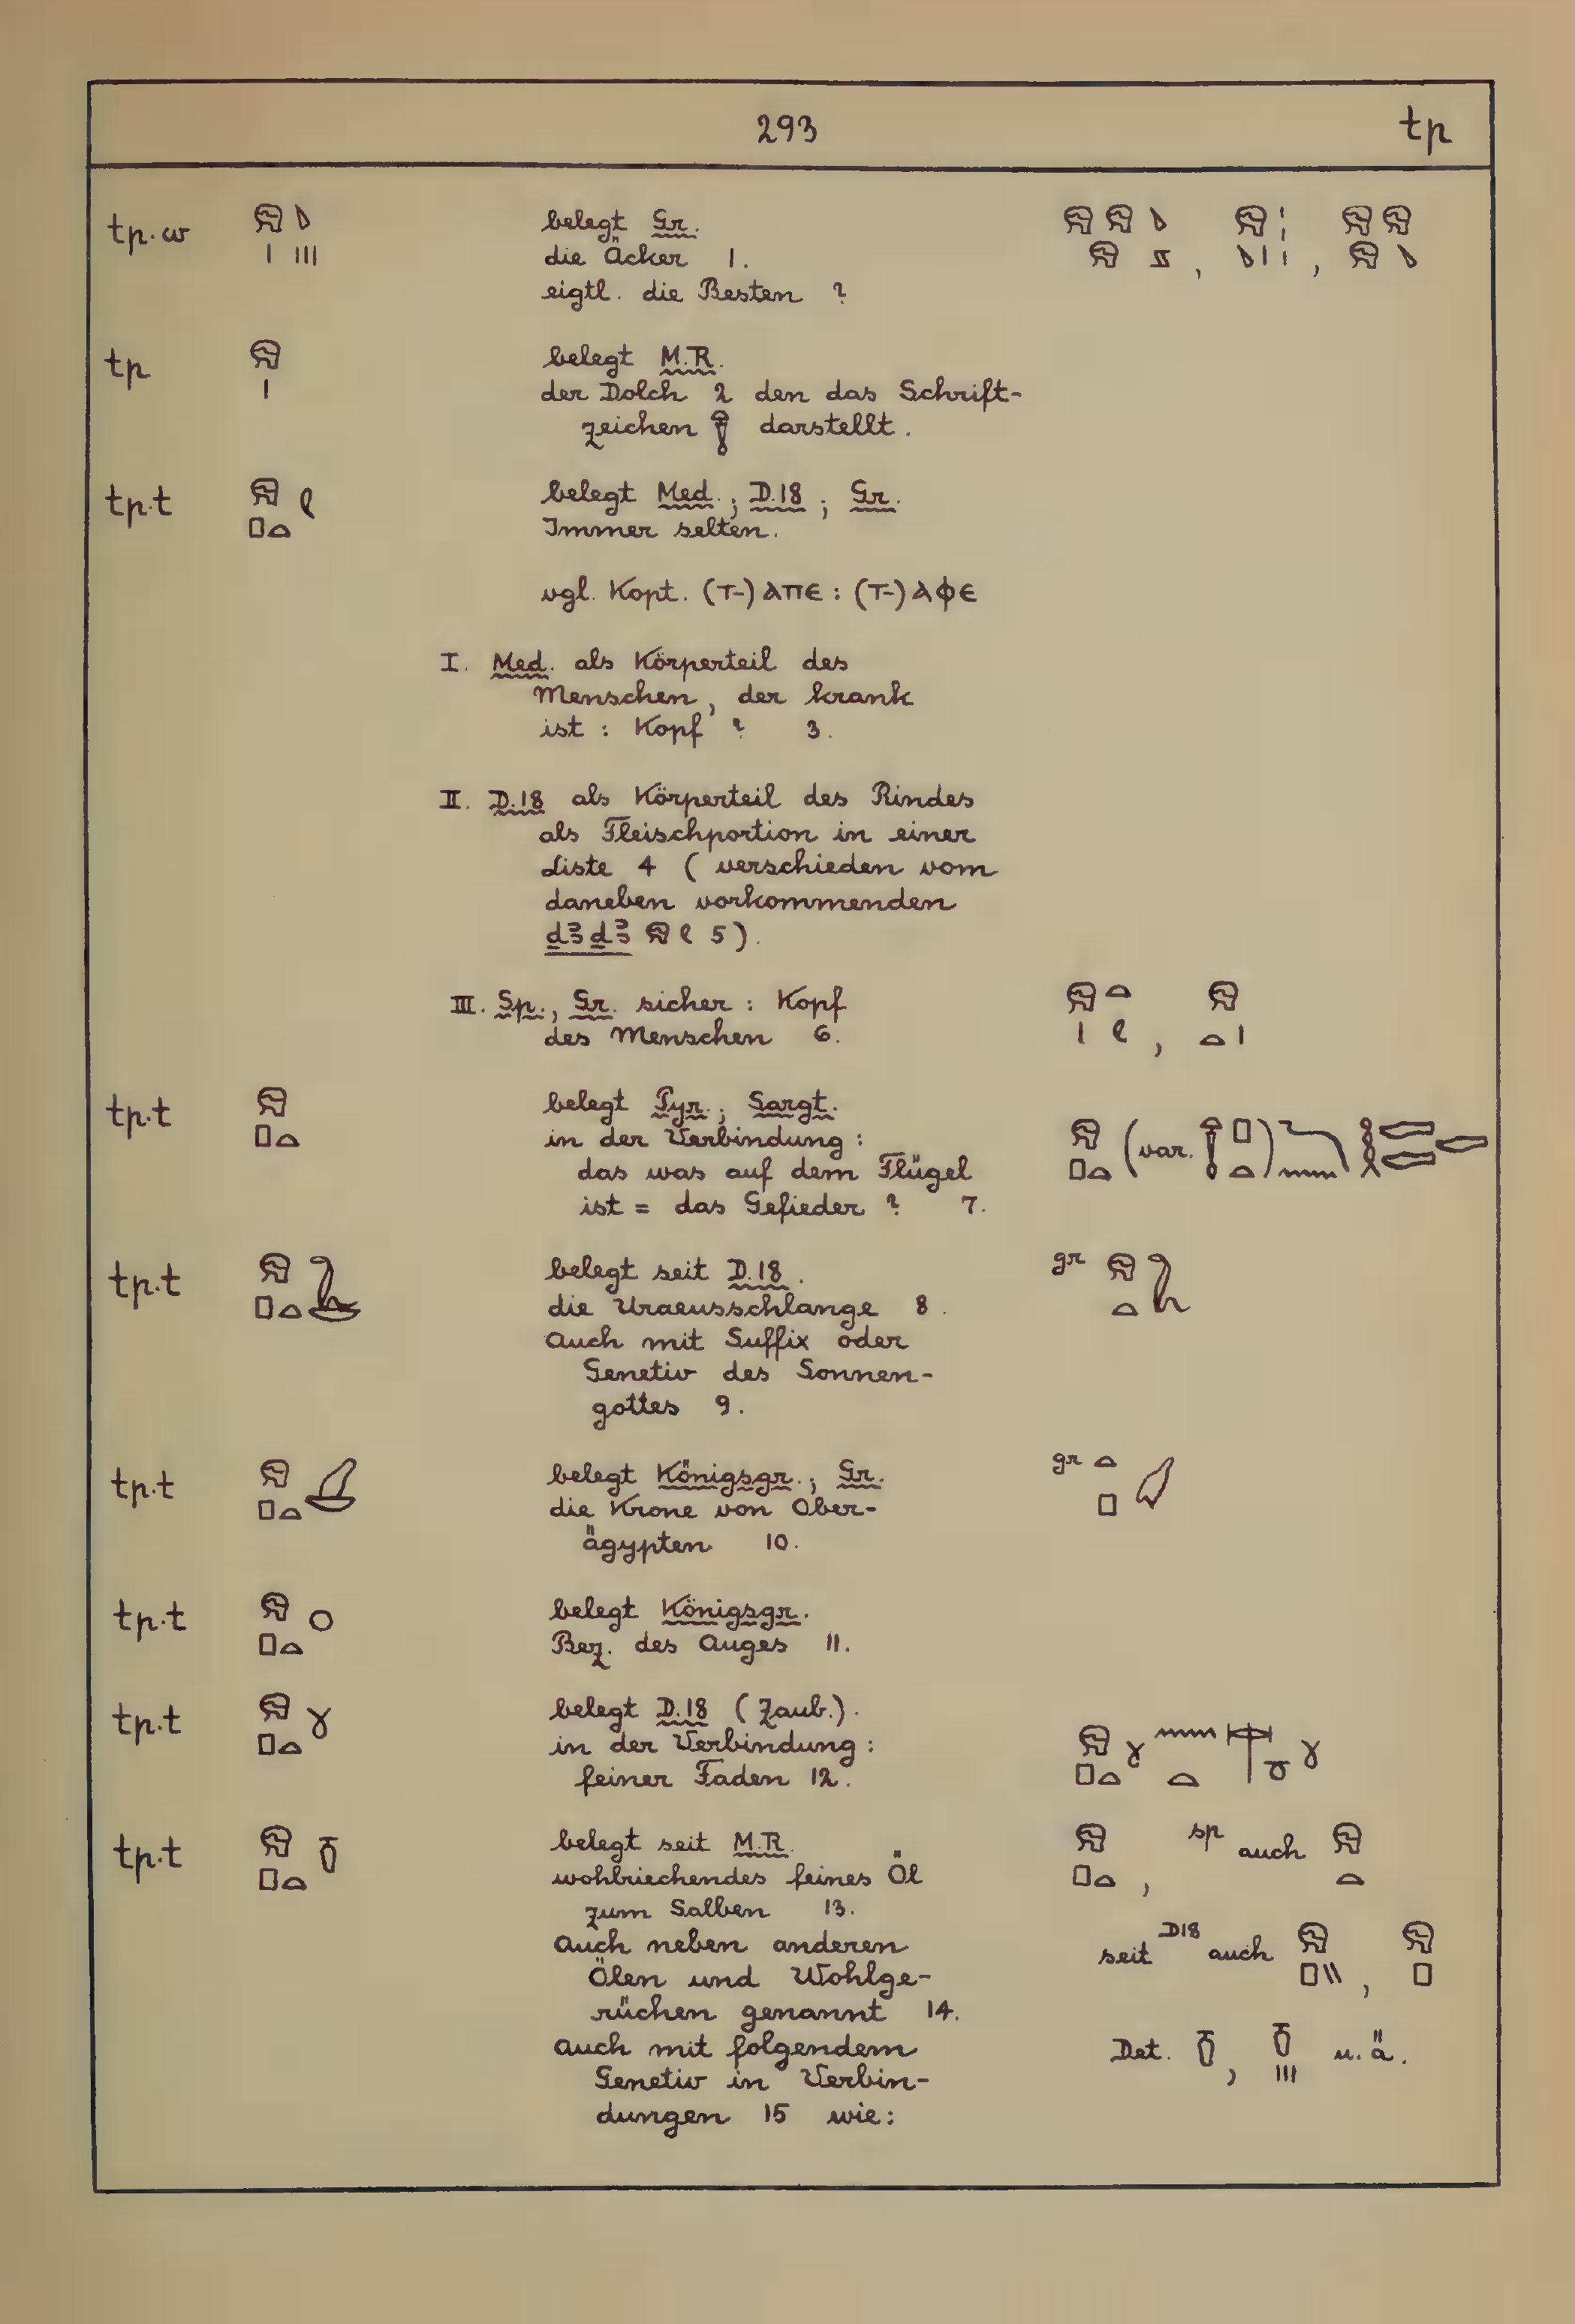 293 tp
tp.w
belegt Gr.
die Äcker 1.
eigtl. die Besten ?
tp
belegt M.R.
der Dolch 2 den das Schrift-
zeichen darstellt.
tp.t
belegt Med.; D.18; Gr.
Immer selten.
vgl. Kopt. (ⲧ-)ⲁⲡⲉ : (ⲧ-)ⲁⲫⲉ
I. Med. als Körperteil des
Menschen, der krank
ist : Kopf ? 3.
II. D.18 als Körperteil des Rindes
als Fleischportion in einer
Liste 4 ( verschieden vom
daneben vorkommenden
ḏꜣḏꜣ 5).
III. Sp., Gr. sicher : Kopf
des Menschen 6.
tp.t
belegt Pyr.; Sargt.
in der Verbindung :
(var. )
das was auf dem Flügel
ist = das Gefieder ? 7.
tp.t
belegt seit D.18. gr
die Uraeusschlange 8.
Auch mit Suffix oder
Genetiv des Sonnen-
gottes 9.
tp.t
belegt Königsgr.; Gr. gr
die Krone von Ober-
ägypten 10.
tp.t
belegt Königsgr.
Bez. des Auges 11.
tp.t
belegt D.18 (Zaub.).
in der Verbindung :
feiner Faden 12.
tp.t
belegt seit M.R. , sp auch
wohlriechendes feines Öl
zum Salben 13.
Auch neben anderen seit D18 auch ,
Ölen und Wohlge-
rüchen genannt 14.
Auch mit folgendem Det. , u.ä.
Genetiv in Verbin-
dungen 15 wie: